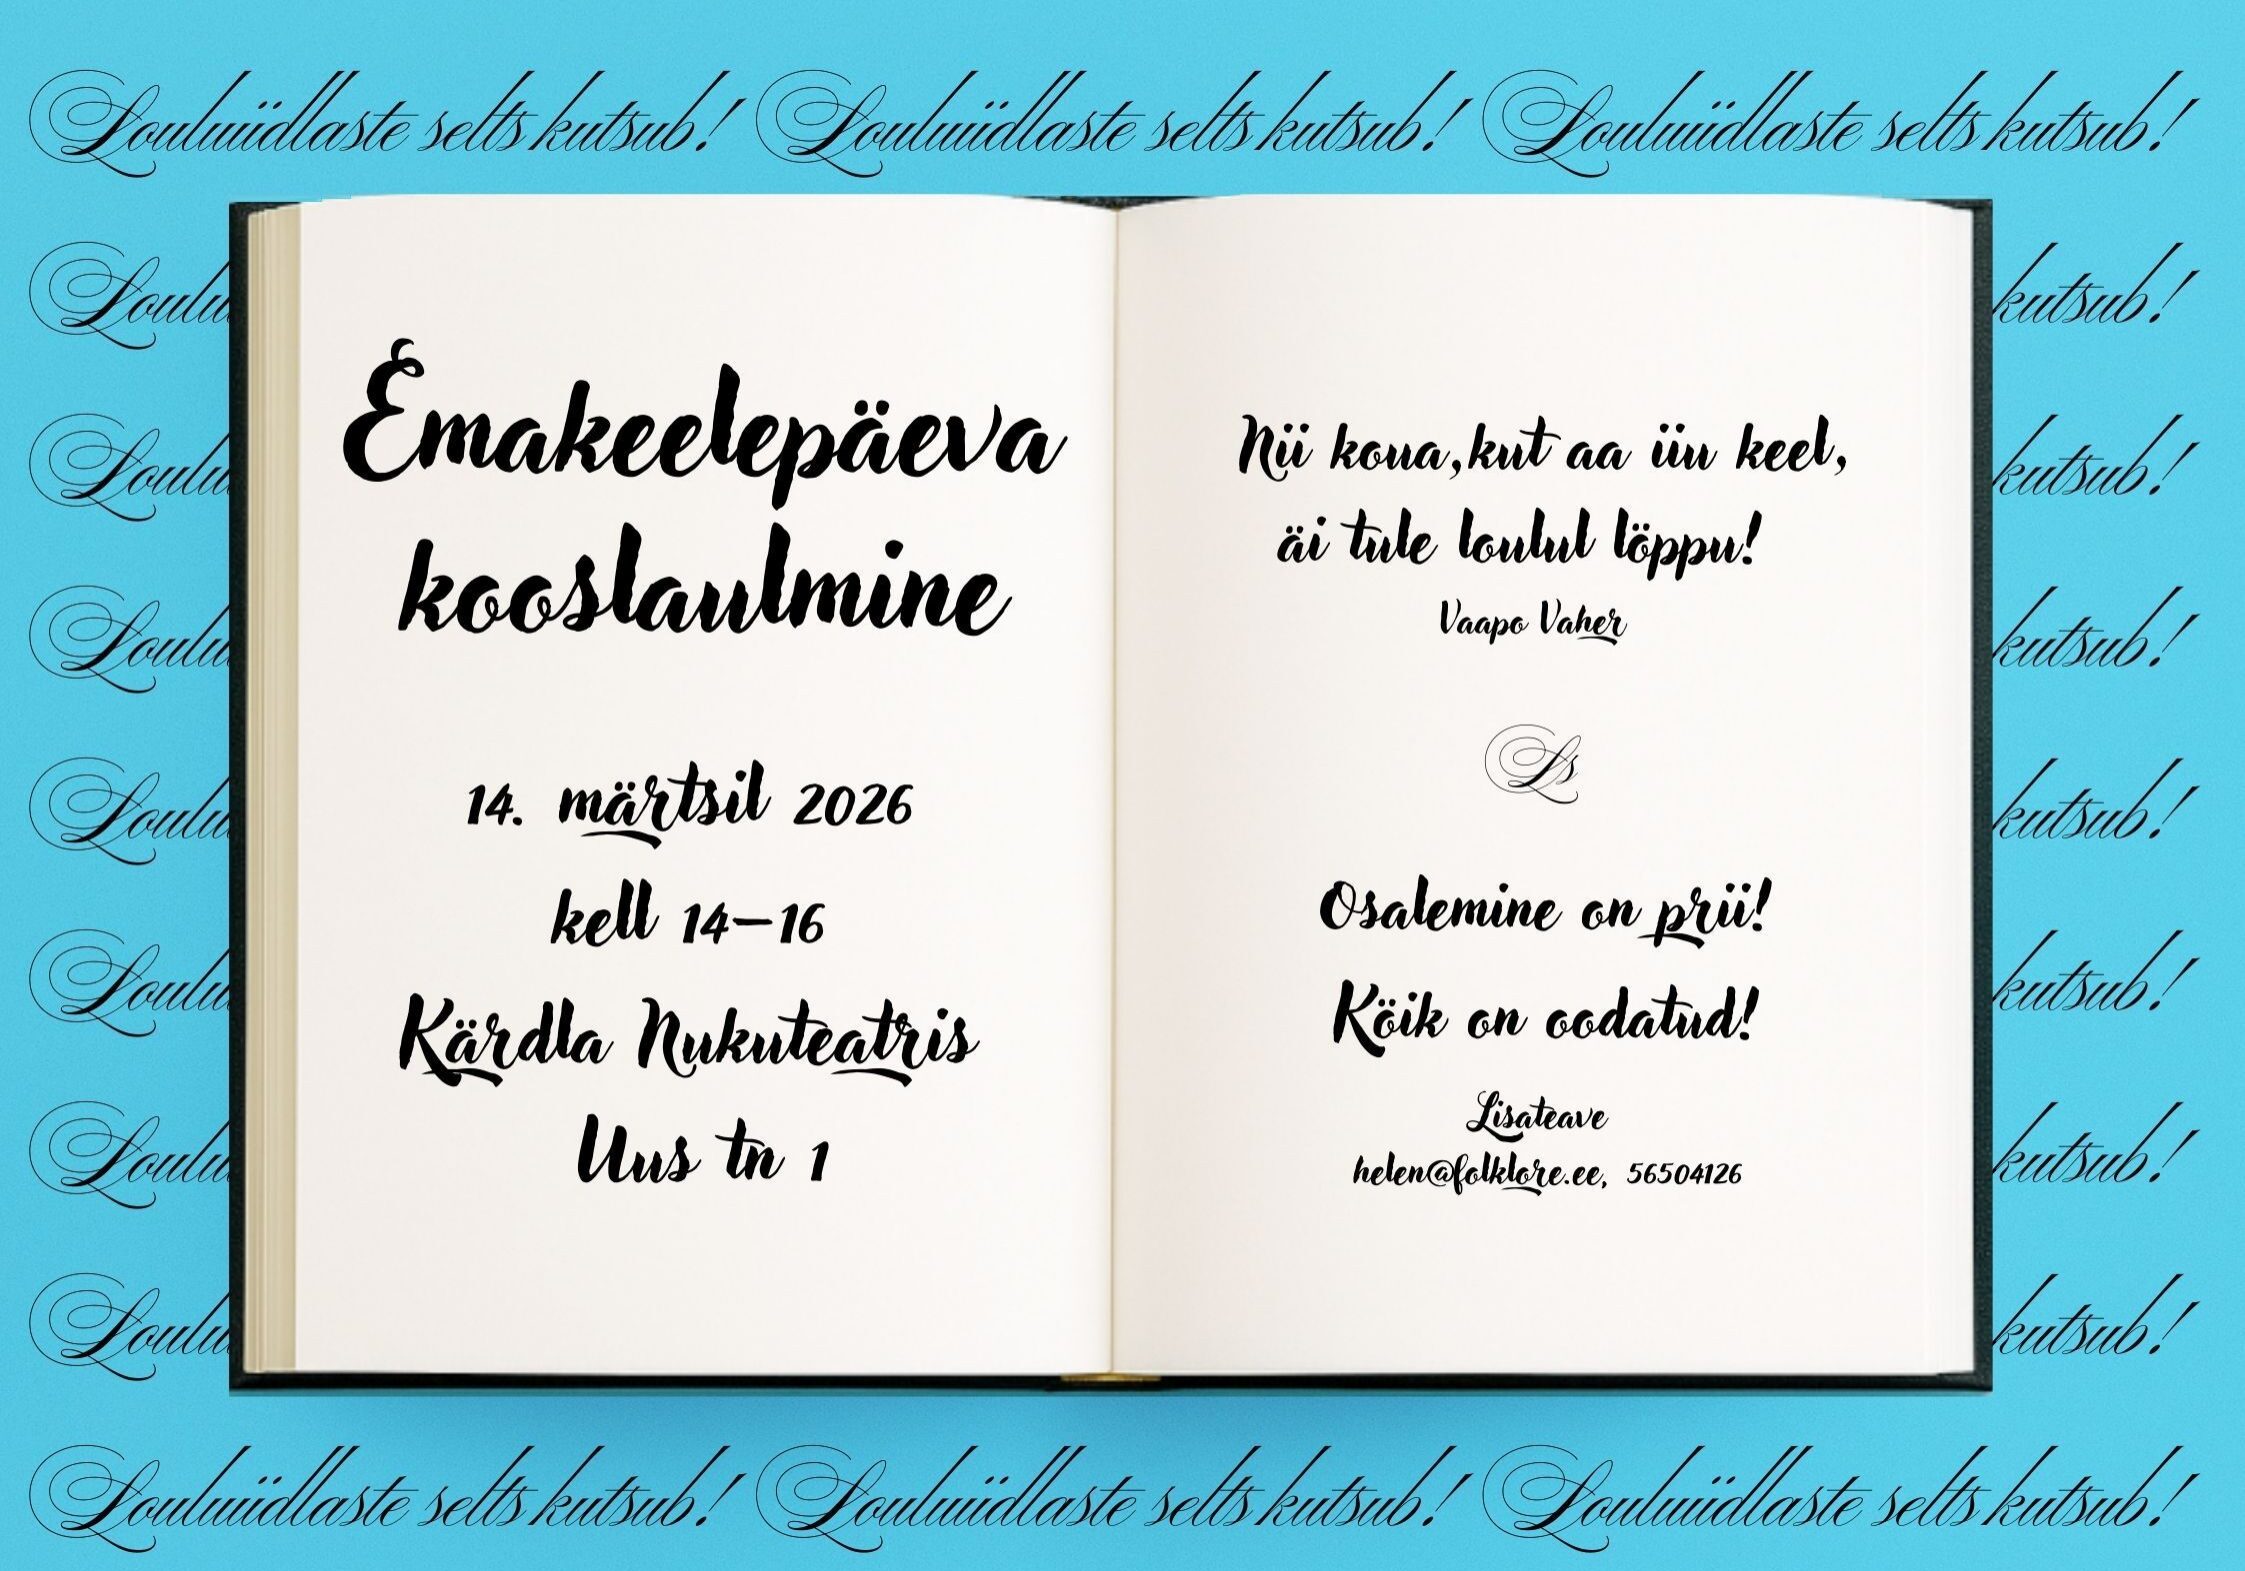 Louluiidlaste selts kutsub! Louluiidlaste selts kutsub! Louluiidlaste selts kutsub!
Emakeelepäeva
kooslaulmine
14. märtsil 2026
kell 14–16
Kärdla Nukuteatris
Uus tn 1
Nii koua,kut aa iiu keel,
äi tule loulul löppu!
Vaapo Vaher
Ls
Osalemine on prii!
Köik on oodatud!
Lisateave
helen@folklore.ee, 56504126
Loulu
kutsub!
Loulu
kutsub!
Loulu
kutsub!
Loulu
kutsub!
Loulu
kutsub!
Loulu
kutsub!
Loulu
kutsub!
Louluiidlaste selts kutsub! Louluiidlaste selts kutsub! Louluiidlaste selts kutsub!